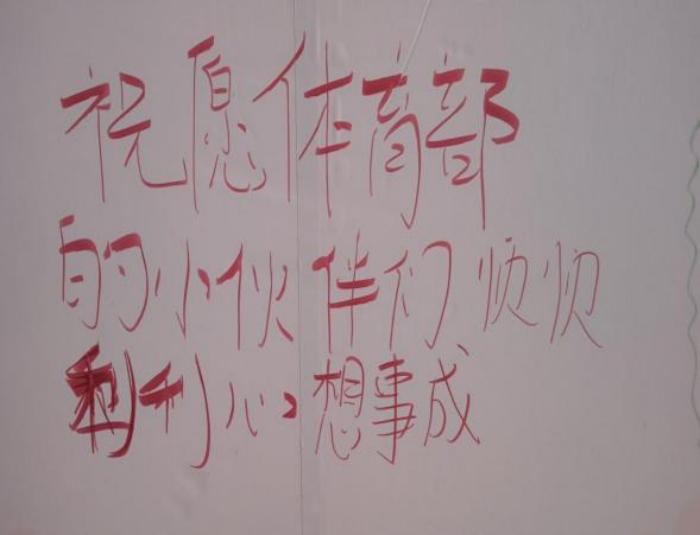 祝愿体育部
的小伙伴们顺顺
利利心想事成